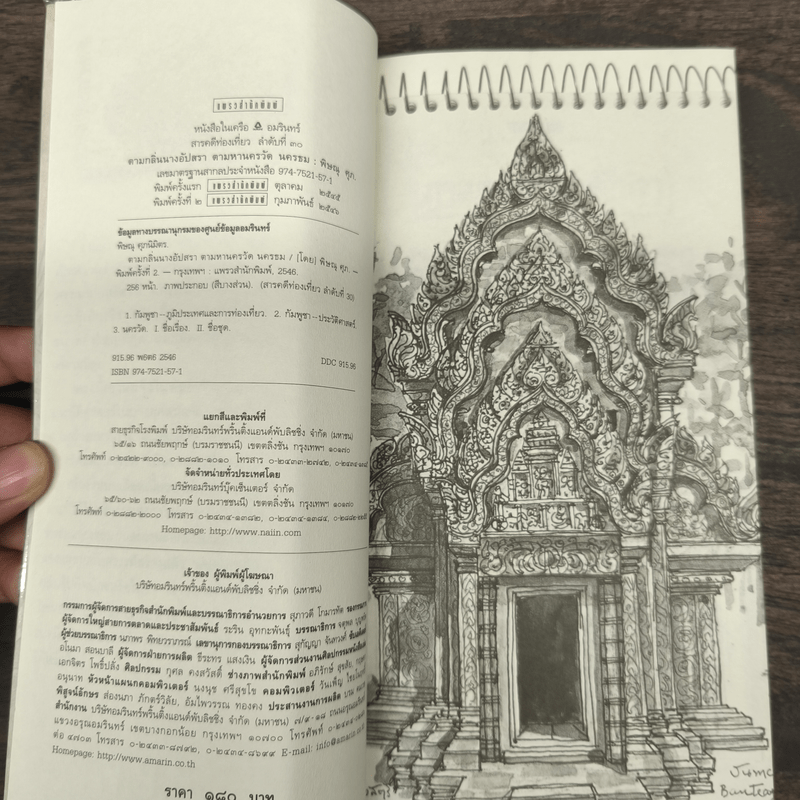 แพรวสำนักพิมพ์
หนังสือในเครือ อมรินทร์
สารคดีท่องเที่ยว ลำดับที่ ๓๐
ตามกลิ่นนางอัปสรา ตามหานครวัด นครธม : พิษณุ ศุภ.
เลขมาตรฐานสากลประจำหนังสือ 974-7521-57-1
พิมพ์ครั้งแรก แพรวสำนักพิมพ์ ตุลาคม ๒๕๔๕
พิมพ์ครั้งที่ ๒ แพรวสำนักพิมพ์ กุมภาพันธ์ ๒๕๔๖
ข้อมูลทางบรรณานุกรมของศูนย์ข้อมูลอมรินทร์
พิษณุ ศุภนิมิตร.
ตามกลิ่นนางอัปสรา ตามหานครวัด นครธม / [โดย] พิษณุ ศุภ. —
พิมพ์ครั้งที่ 2. — กรุงเทพฯ : แพรวสำนักพิมพ์, 2546.
256 หน้า. ภาพประกอบ (สีบางส่วน). (สารคดีท่องเที่ยว ลำดับที่ 30)
1. กัมพูชา—ภูมิประเทศและการท่องเที่ยว. 2. กัมพูชา—ประวัติศาสตร์.
3. นครวัด. I ชื่อเรื่อง. II. ชื่อชุด.
915.96 พ636ต 2546 DDC 915.96
ISBN 974-7521-57-1
แยกสีและพิมพ์ที่
สายธุรกิจโรงพิมพ์ บริษัทอมรินทร์พริ้นติ้งแอนด์พับลิชชิ่ง จำกัด (มหาชน)
๖๕/๑๖ ถนนชัยพฤกษ์ (บรมราชชนนี) เขตตลิ่งชัน กรุงเทพฯ ๑๐๑๗๐
โทรศัพท์ ๐-๒๔๒๒-๙๐๐๐, ๐-๒๘๘๒-๑๐๑๐ โทรสาร ๐-๒๔๓๓-๒๗๔๒,
จัดจำหน่ายทั่วประเทศโดย
บริษัทอมรินทร์บุ๊คเซ็นเตอร์ จำกัด
๖๕/๖๐-๖๒ ถนนชัยพฤกษ์ (บรมราชชนนี) เขตตลิ่งชัน กรุงเทพฯ ๑๐๑๗๐
โทรศัพท์ ๐-๒๘๘๒-๒๐๐๐ โทรสาร ๐-๒๔๓๔-๑๓๘๒, ๐-๒๔๓๔-๑๓๘๔,
Homepage: http://www.naiin.com
เจ้าของ ผู้พิมพ์ผู้โฆษณา
บริษัทอมรินทร์พริ้นติ้งแอนด์พับลิชชิ่ง จำกัด (มหาชน)
กรรมการผู้จัดการสายธุรกิจสำนักพิมพ์และบรรณาธิการอำนวยการ สุภาวดี โกมารทัต
ผู้จัดการใหญ่สายการตลาดและประชาสัมพันธ์ ระริน อุทกะพันธุ์ บรรณาธิการ
ผู้ช่วยบรรณาธิการ นภาพร พิทยวราภรณ์ เลขานุการกองบรรณาธิการ สุกัญญา จันตวงศ์
อโนมา สอนบาลี ผู้จัดการฝ่ายการผลิต ธีระทร แสงเงิน
เอกจิตร โพธิ์ปลั่ง ศิลปกรรม กุศล คงสวัสดิ์ ช่างภาพสำนักพิมพ์ อภิรักษ์ สุขสัย,
อนุนาท หัวหน้าแผนกคอมพิวเตอร์ นงนุช ศรีสุรโข คอมพิวเตอร์ วันเพ็ญ
พิสูจน์อักษร ส่องนภา ภักตร์วิลัย, อัมไพวรรณ ทองคง ประสานงานการผลิต
สำนักงาน บริษัทอมรินทร์พริ้นติ้งแอนด์พับลิชชิ่ง จำกัด (มหาชน) ๗/๙-๑๘ ถนนอรุณอมรินทร์
แขวงอรุณอมรินทร์ เขตบางกอกน้อย กรุงเทพฯ ๑๐๗๐๐ โทรศัพท์
ต่อ ๔๗๐๓ โทรสาร ๐-๒๔๓๓-๘๗๙๒, ๐-๒๔๓๔-๘๖๙๙ E-mail:
Homepage: http://www.amarin.co.th
ราคา ๑๘๐ บาท